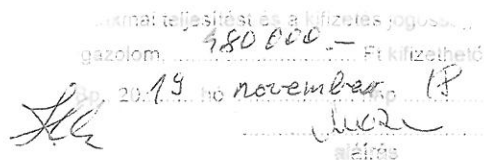 teljesítést és a kifizetés jogoss
gazolom 480 000.- Ft kifizethető
Bp. 2019 hó november nap 18
aláírás